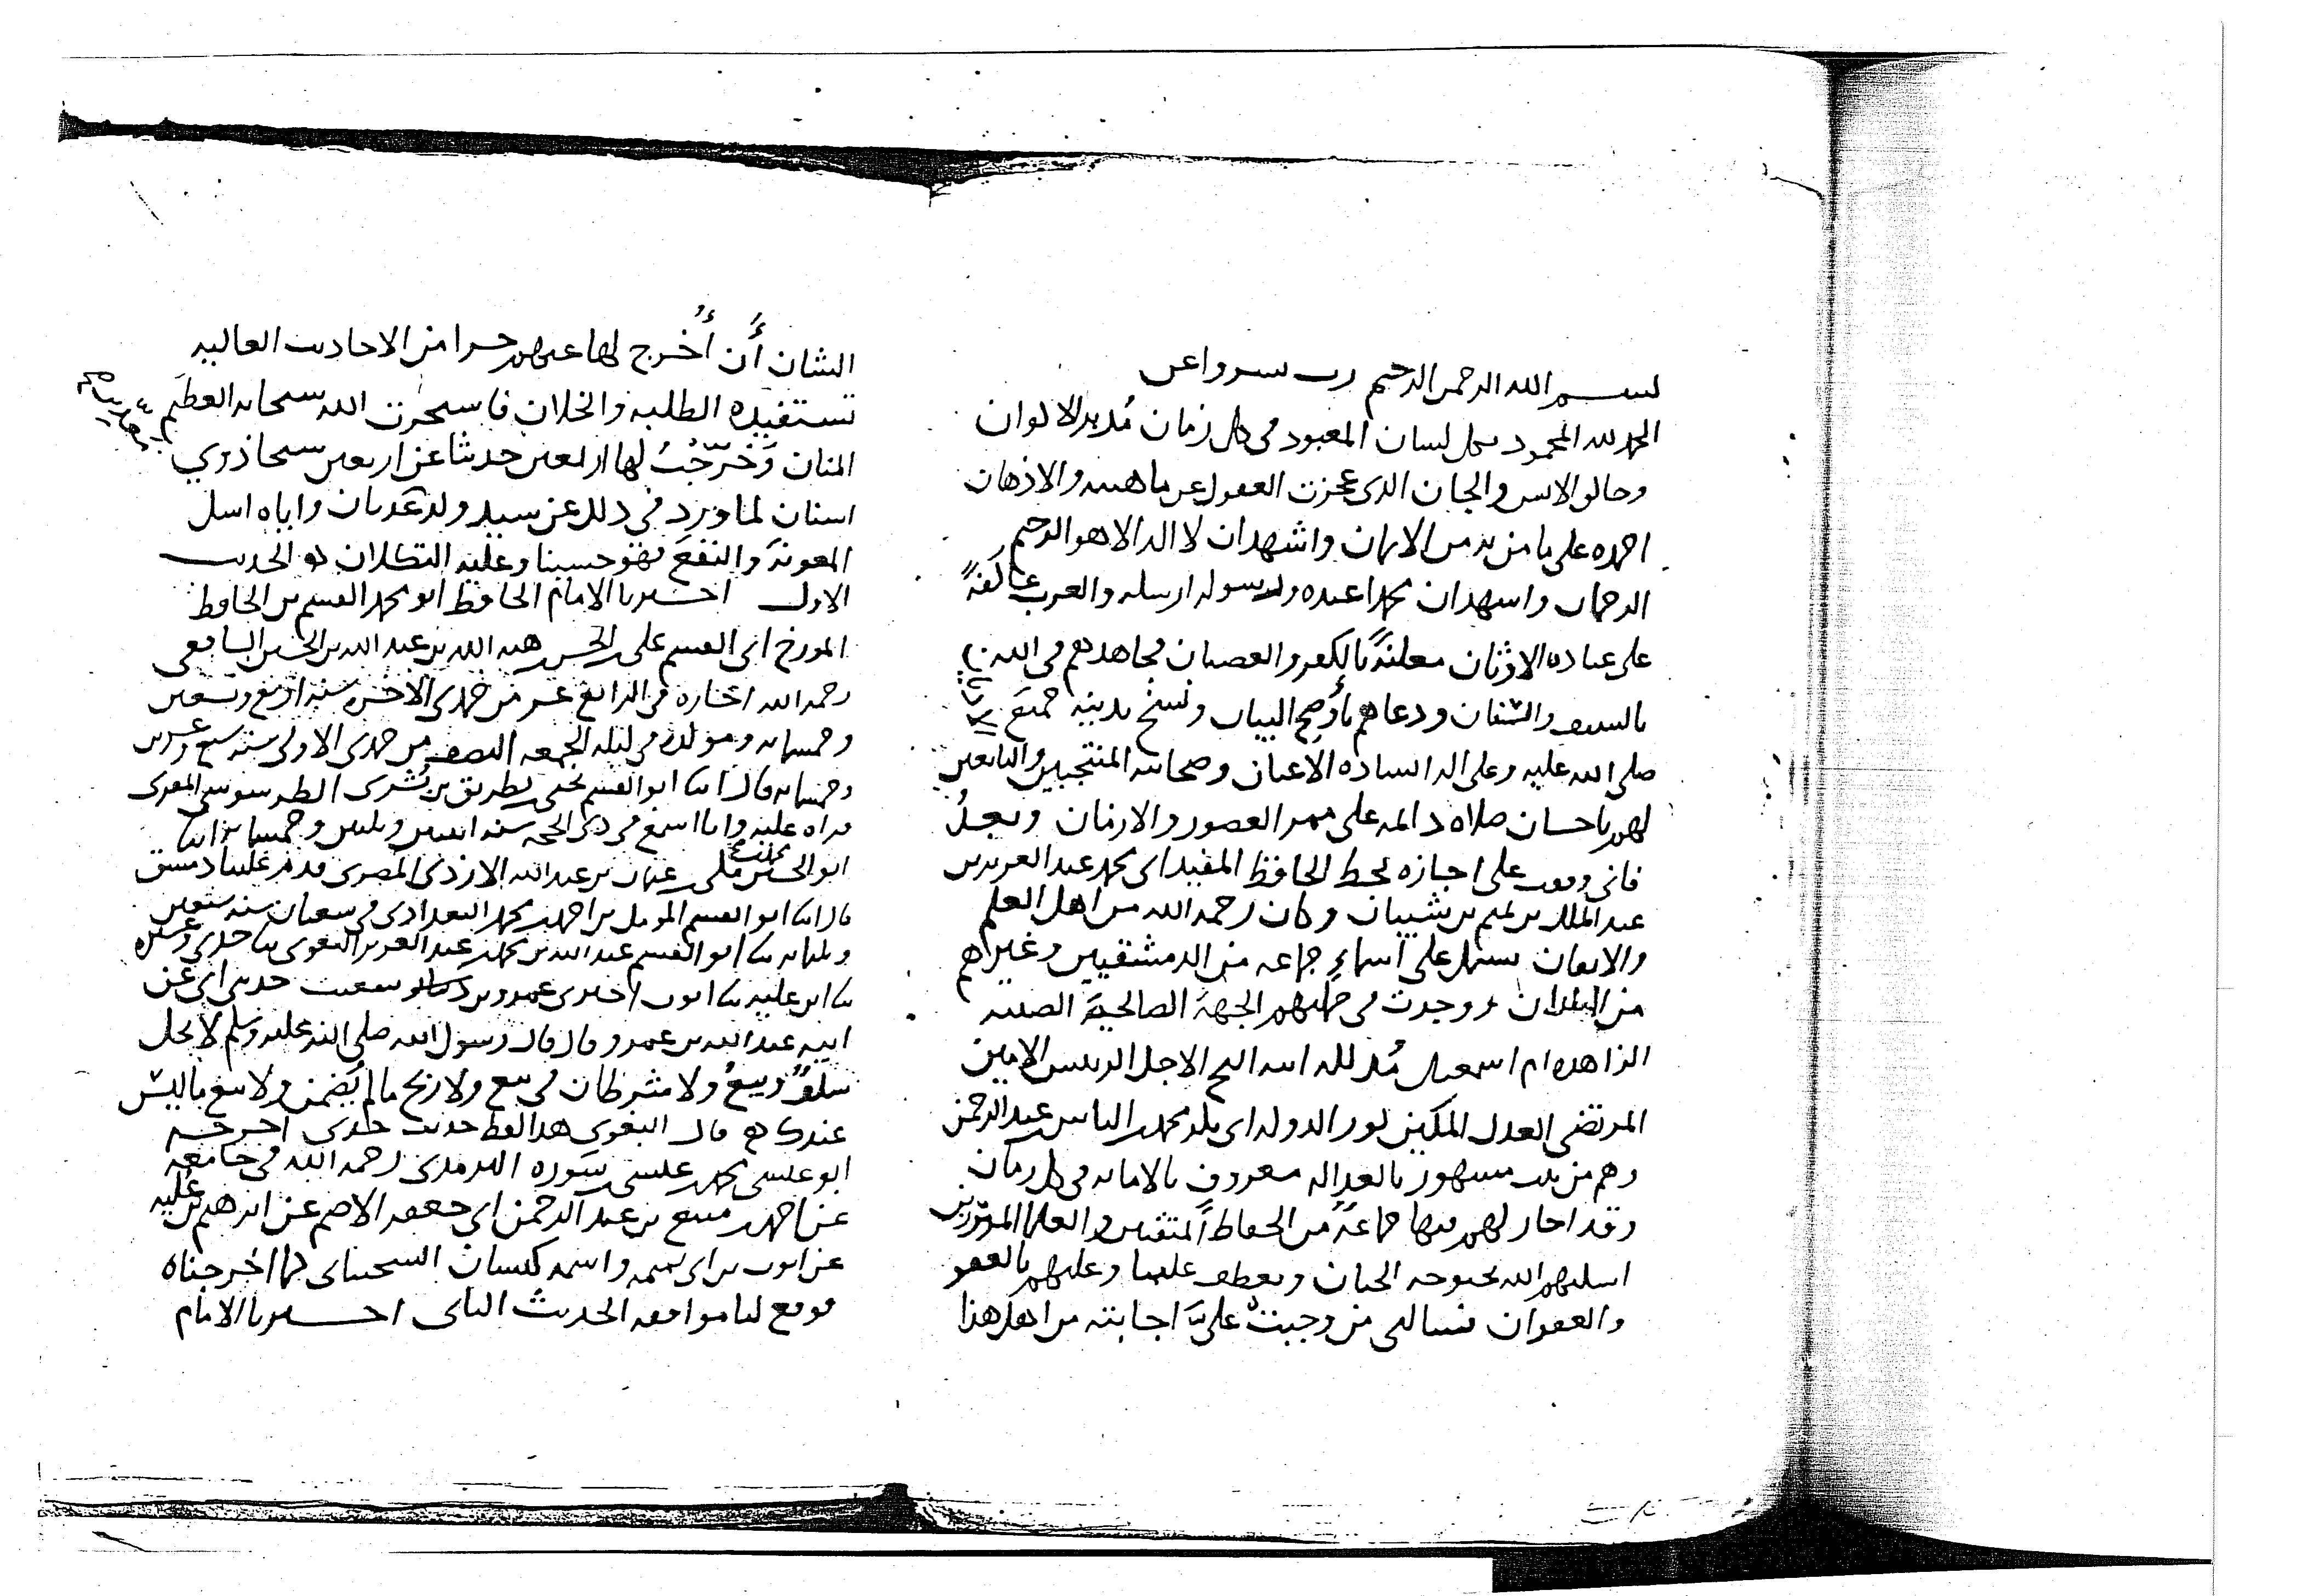 بسم الله الرحمن الرحيم رب يسر واعن
الحمد لله المحمود بكل لسان المعبود في كل زمان مدبر الاكوان
وخالق الانس والجان الذي عجزت العقول عن ماهيته والاذهان
احمده على ما من به من الايمان واشهد ان لا اله الا هو الرحيم
الرحمان واشهد ان محمدا عبده ورسوله ارسله والعرب عاكفة
على عبادة الاوثان معلنة بالكفر والعصيان فجاهدهم في الله
بالسيف والسنان ودعاهم باوضح البيان ونسخ بدينه جميع الاديان
صلى الله عليه وعلى اله السادة الاعيان وصحابته المنتجبين والتابعين
لهم باحسان صلاة دائمة على ممر العصور والازمان وبعد
فاني وقفت على اجازة بخط الحافظ المفيد ابي محمد عبد العزيز بن
عبد الملك بن تميم بن شيبان وكان رحمه الله من اهل العلم
والاتقان تشتمل على أسماء جماعة من الدمشقيين وغيرهم
من البلدان ووجدت في جملتهم الجهة الصالحة الصينة
الزاهدة ام اسمعيل مدللة ابنة الشيخ الاجل الرئيس الامين
المرتضى العدل المكين نور الدولة ابي محمد بن الياس عبد الرحمن
وهم من بيت مشهور بالعدالة معروف بالامانة في كل زمان
وقد اجاز لهم فيها جماعة من الحفاظ المتقنين والعلما المبرزين
اسكنهم الله بحبوحة الجنان وتعطف علينا وعليهم بالعفو
والغفران فسالني من وجبت علي اجابته من اهل هذا
الشان أن أخرج لها عنهم جزا من الاحاديث العالية
تستفيده الطلبة والخلان فاستخرت الله سبحانه العظيم
المنان وخرجت لها اربعين حديثا عن اربعين شيخا ذوي
اسنان لما ورد في ذلك عن سيد ولد عدنان واياه اسل
المعونة والنفع فهو حسبنا وعليه التكلان الحديث
الاول اخبرنا الامام الحافظ ابو محمد القسم بن الحافظ
المورخ ابي القسم علي بن الحسن بن هبة الله بن عبد الله بن الحسين الشافعي
رحمه الله اجازة في الرابع عشر من جمدى الاخرة سنة اربع وتسعين
وخمسماية ومولده في ليلة الجمعة النصف من جمدى الاولى سنة سبع وعشرين
وخمسماية قال انا ابو القسم يحيى بن بطريق بن بشرى الطرسوسي المقرى
قراة عليه وانا اسمع في ذي الحجة سنة اثنين وثلثين وخمسماية انا
ابو الحسين محمد بن مكي بن عثمان بن عبد الله الازدي المصري قدم علينا دمشق
قال انا ابو القسم المومل بن احمد بن محمد البغدادي في شعبان سنة تسعين
وثلثماية ثنا ابو القسم عبد الله بن محمد بن عبد العزيز البغوي ثنا جدي وغيره
ثنا ابن علية ثنا ايوب اخبرني عمرو بن شعيب حدثني ابي عن
ابيه عبد الله بن عمرو قال قال رسول الله صلى الله عليه وسلم لا يحل
سلف وبيع ولا شرطان في بيع ولا ربح ما لم يضمن ولا بيع ما ليس
عندك قال البغوي هذا لفظ حديث جدي اخرجه
ابو عيسى محمد بن عيسى بن سورة الترمذي رحمه الله في جامعه
عن احمد بن منيع بن عبد الرحمن ابي جعفر الاصم عن ابرهيم بن علية
عن ايوب بن ابي تميمة واسمه كيسان السختياني كما اخرجناه
فوقع لنا موافقة الحديث الثاني اخبرنا الامام